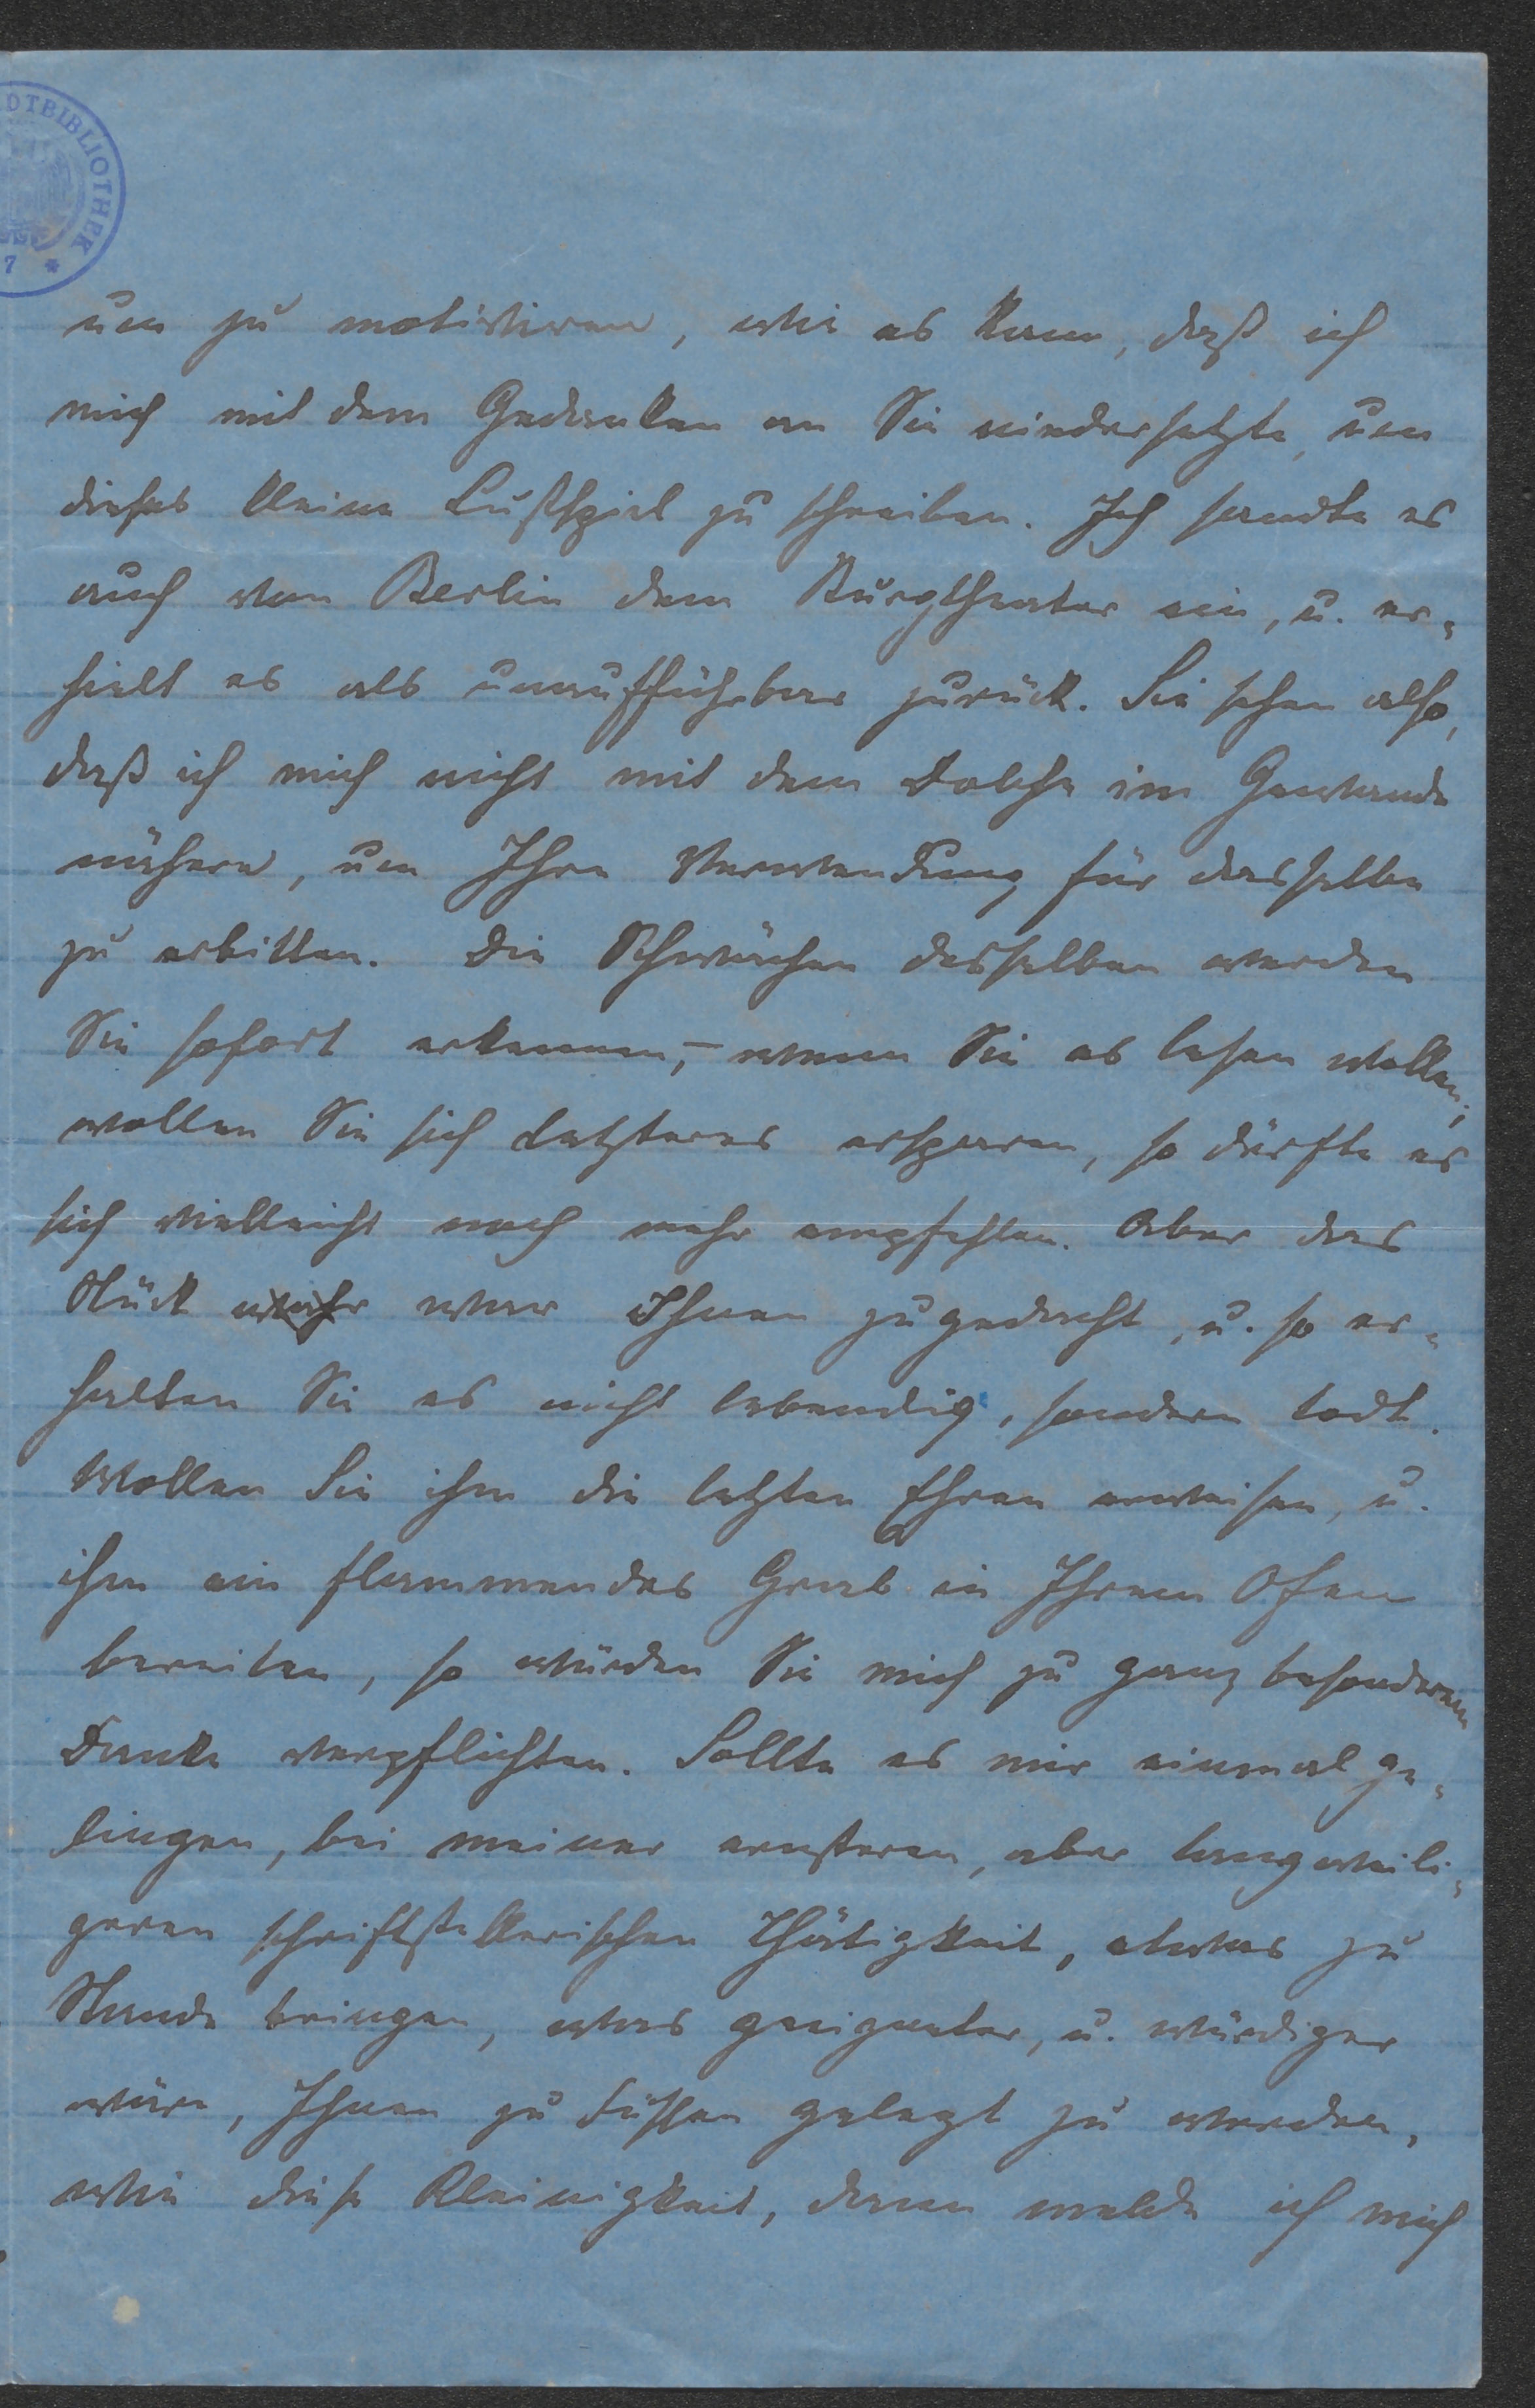 DTBIBLIOTHEK
7 *
um zu motiviren, wie es kam, daß ich
mich mit dem Gedanken an Sie niedersetzte, um
dieses kleine Lustspiel zu schreiben. Ich sandte es
auch von Berlin dem Burgtheater ein, u. er-
hielt es als unaufführbar zurück. Sie sehen also,
daß ich mich nicht mit dem Dolche im Gewande
nähere, um Ihre Verwendung für dasselbe
zu erbitten. Die Schwächen desselben werden
Sie sofort erkennen, – wenn Sie es lesen wollen;
wollen Sie sich Letzteres ersparen, so dürfte es
sich vielleicht noch mehr empfehlen. Aber das
Stück war Ihnen zugedacht, u. so er-
halten Sie es nicht lebendig, sondern todt.
Wollen Sie ihm die letzten Ehren erweisen, u.
ihm ein flammendes Grab in Ihrem Ofen
bereiten, so würden Sie mich zu ganz besonderem
Danke verpflichten. Sollte es mir einmal ge-
lingen, bei meiner ernsteren, aber langweili-
geren schriftstellerischen Thätigkeit, etwas zu
Stande bringen, was geeigneter, u. würdiger
wäre, Ihnen zu Füssen gelegt zu werden,
wie diese Kleinigkeit, dann melde ich mich